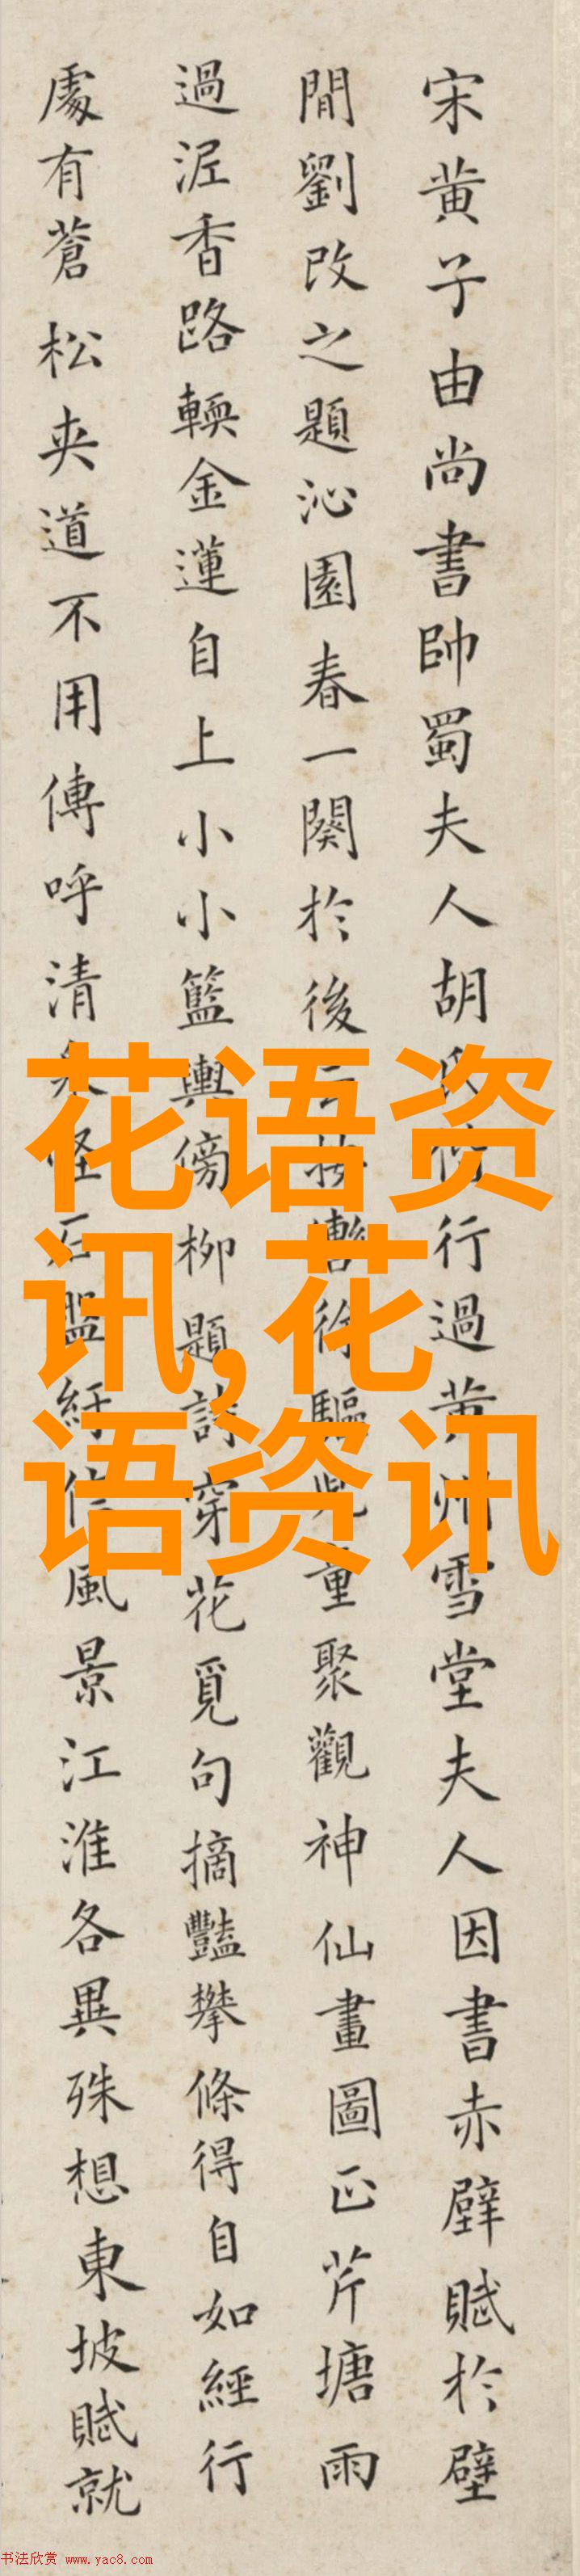 宋黄子由尚書帥蜀夫人胡氏行過黄州雪堂夫人因書赤壁賦於壁
間劉改之題沁園春一闋於後云按轡徐驅兒童聚觀神仙畫圖正芹塘雨
過泥香路輭金蓮自上小小籃輿傍柳題詩穿花覓句摘豔攀條得自如經行
處有蒼松夾道不用傳呼清泉怪石盤紆信風景江淮各異殊想東坡賦就
花语资
讯,花
语资讯
书法欣赏 www.yac8.com